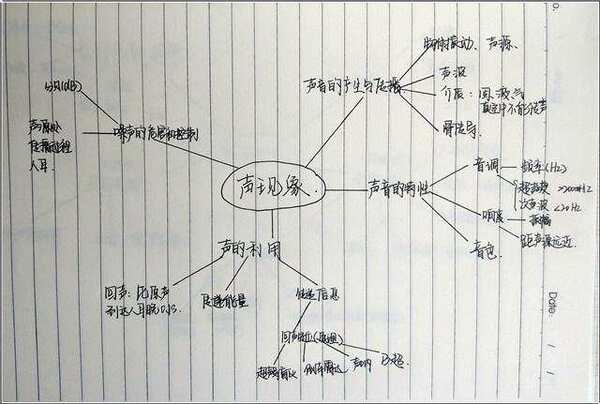 声现象
声音的产生与传播
物体振动、声源
声波
介质：固液气
真空中不能传声
骨传导
声音的特性
音调
频率(Hz)
超声波 >20000Hz
次声波 <20Hz
响度
振幅
距声源远近
音色
声的利用
回声：比原声
到达人耳晚0.1s
传递能量
传递信息
回声定位(蝙蝠)
倒车雷达
声呐
B超
噪声的危害和控制
分贝(dB)
声源处
传播过程
人耳
Date: